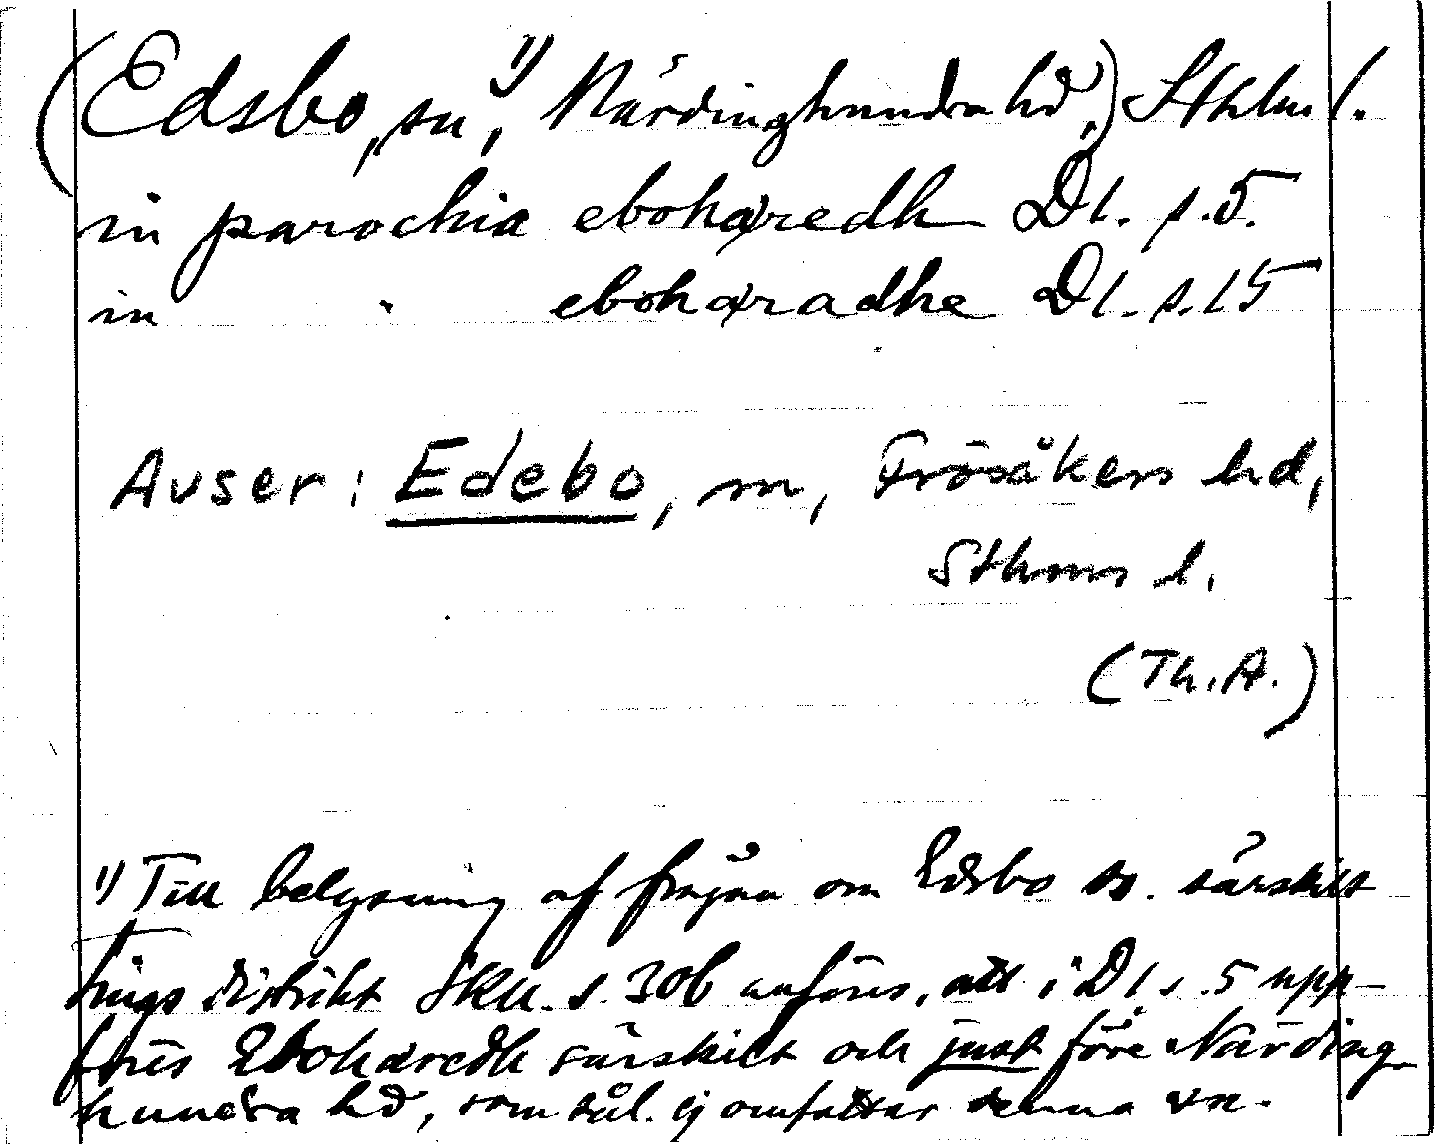 (Edsbo, sn,¹⁾ Närdinghundra hd,) Sthlms l.
in parochia eboharedh Dl. s.5.
in " eboharadhe Dl. s.15
Avser: Edebo, sn, Frösåkers hd,
Sthms l.
(Th.A.)
¹⁾ Till belysning af frågan om Edsbo ss. särskilt
tings distrikt Sku. s.306 anföres, att i Dl s.5 upp-
föres Eboharedh särskilt och just före Närding
hundra hd, som sål. ej omfattar denna sn.